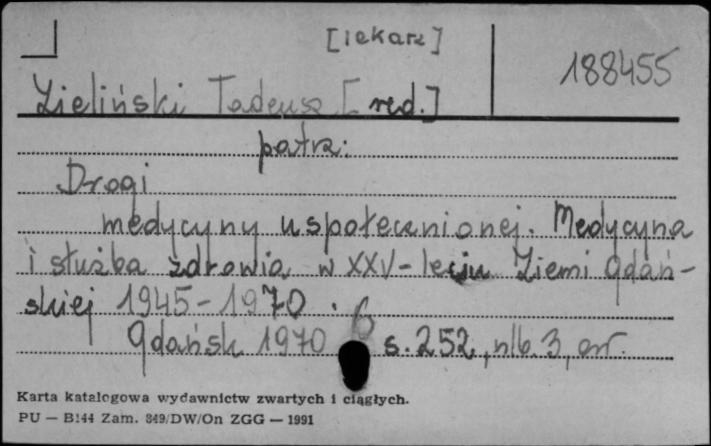 [lekarz]
188455
Zieliński Tadeusz [red.]
patrz:
Drogi
medycyny uspołecznionej. Medycyna
i służba zdrowia w XXV-leciu Ziemi Gdań-
skiej 1945-1970.
Gdańsk 1970 s. 252, nlb. 3,
Karta katalogowa wydawnictw zwartych i ciągłych.
PU — B144 Zam. 849/DW/On ZGG — 1991